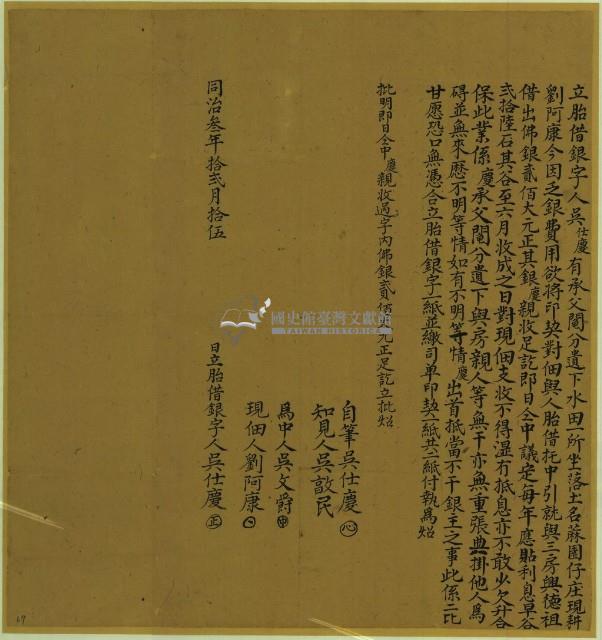 立胎借銀字人吳仕慶有承父鬮分遺下水田一所坐落土名蔴園仔庄現耕
劉阿康今因乏銀費用欲將印契對佃與人胎借托中引就與三房興德祖
借出佛銀貳佰大元正其銀慶親收足訖即日仝中議定每年應貼利息早谷
弍拾陸石其谷至六月收成之日對現佃支收不得湿冇抵息亦不敢少欠升合
保此業係慶承父鬮分遺下與房親人等無干亦無重張典掛他人為
碍並無來歷不明等情如有不明等情慶出首抵當不干銀主之事此係二比
甘愿恐口無憑合立胎借銀字一紙並繳司单印契一紙共二紙付執為炤
批明即日仝中慶親收過字內佛銀貳佰大元正足訖立批炤
自筆吳仕慶
知見人吳敼民
為中人吳文爵
現佃人劉阿康
同治叁年拾弍月拾伍
日立胎借銀字人吳仕慶
國史館臺灣文獻館
TAIWAN HISTORICA